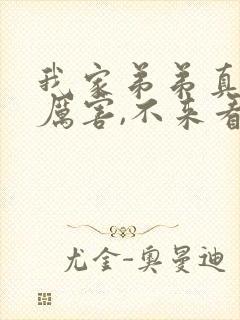 我家弟弟真
厲害,不来看
尤金-奥曼迪